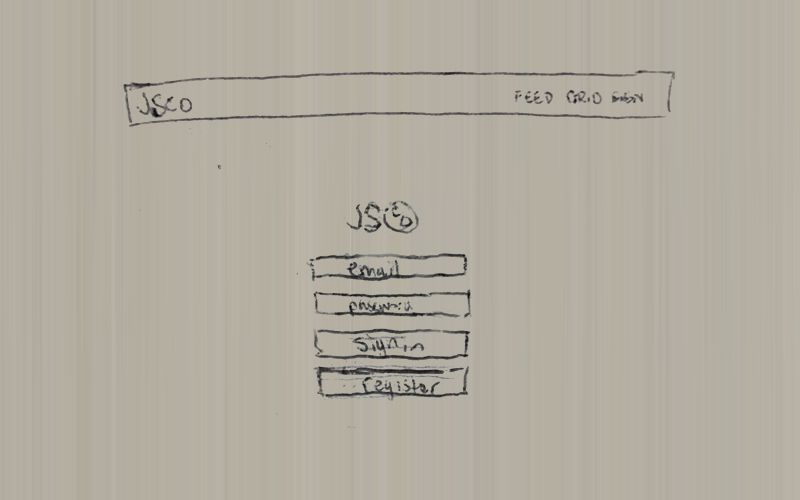 JSCO FEED GRID
JSCO
email
sign in
register